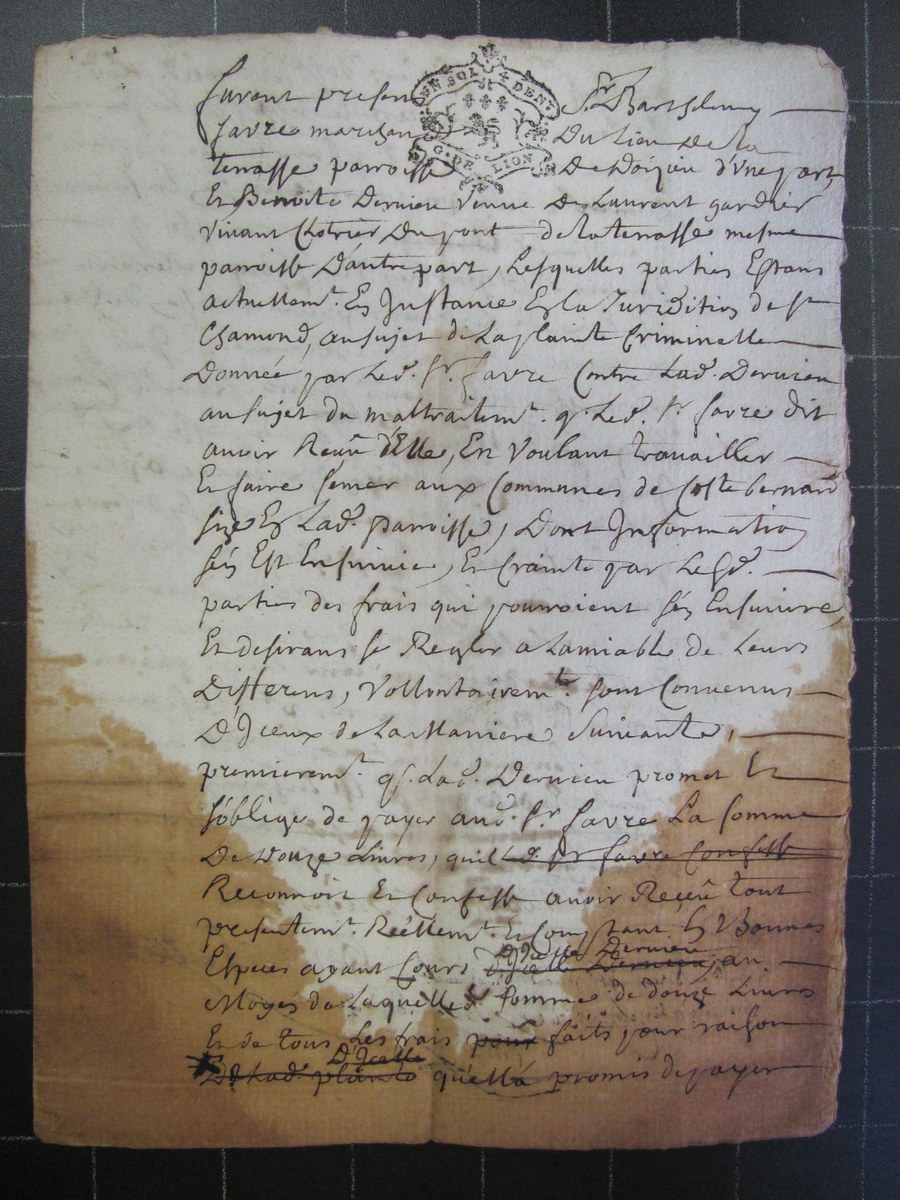 UN SOL 4 DEN.
G. DE LION
furent presens Sr. Barthelemy
favre marchand Du Lieu De la
terrasse parroisse De Doizieu d'Une part,
Et Benoite Dervieu veuve De Laurent gardier
vivant Du pont de la terrasse mesme
parroisse D'autre part, Lesquelles parties Estans
actuellemt. En Instance En la Juridition de St
Chamond, au sujet de La plainte Criminelle
Donnée par Led. Sr. favre Contre Lad. Dervieu
au sujet du maltraitemt. q. Led. Sr. favre dit
avoir Receu d'Elle, En Voulant travailler
Et faire semer aux Communes de Coste bernard
size En Lad. Parroisse, Dont Information
s'en Est Ensuivie, Et Crainte par Lesd.
parties des frais qui pourroient s'en Ensuivre,
Et desirans se Regler a Lamiable de Leurs
Differens, Vollontairemt. sont Convenus
D'Iceux de La Maniere Suivante,
premieremt. q. Lad. Dervieu promet Et
s'oblige de payer aud. Sr. favre La somme
De Douze Livres, quil Led. Sr favre Confesse
Reconnoit Et Confesse avoir Receu tout
presentemt. Réellemt. Et Comptant En Bonnes
D'Icelle Dervieu
Especes ayant Cours d'Icelle Dervieu, au
Moyen de Laquelle somme de douze Livres
Et de tous Les frais pour faits pour raison
D'Icelle
De Lad. plainte quella promis de payer